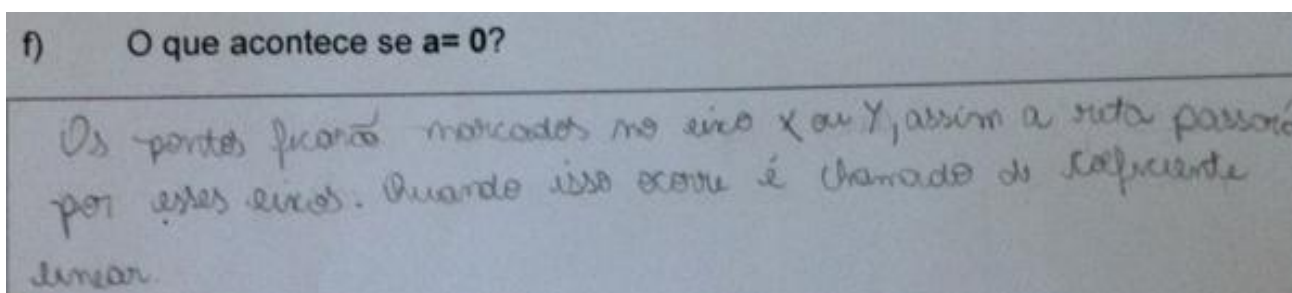 f) O que acontece se a= 0?
Os pontos ficarão marcados no eixo x ou Y, assim a reta passará
por esses eixos. Quando isso ocorre é chamado de coeficiente
linear.